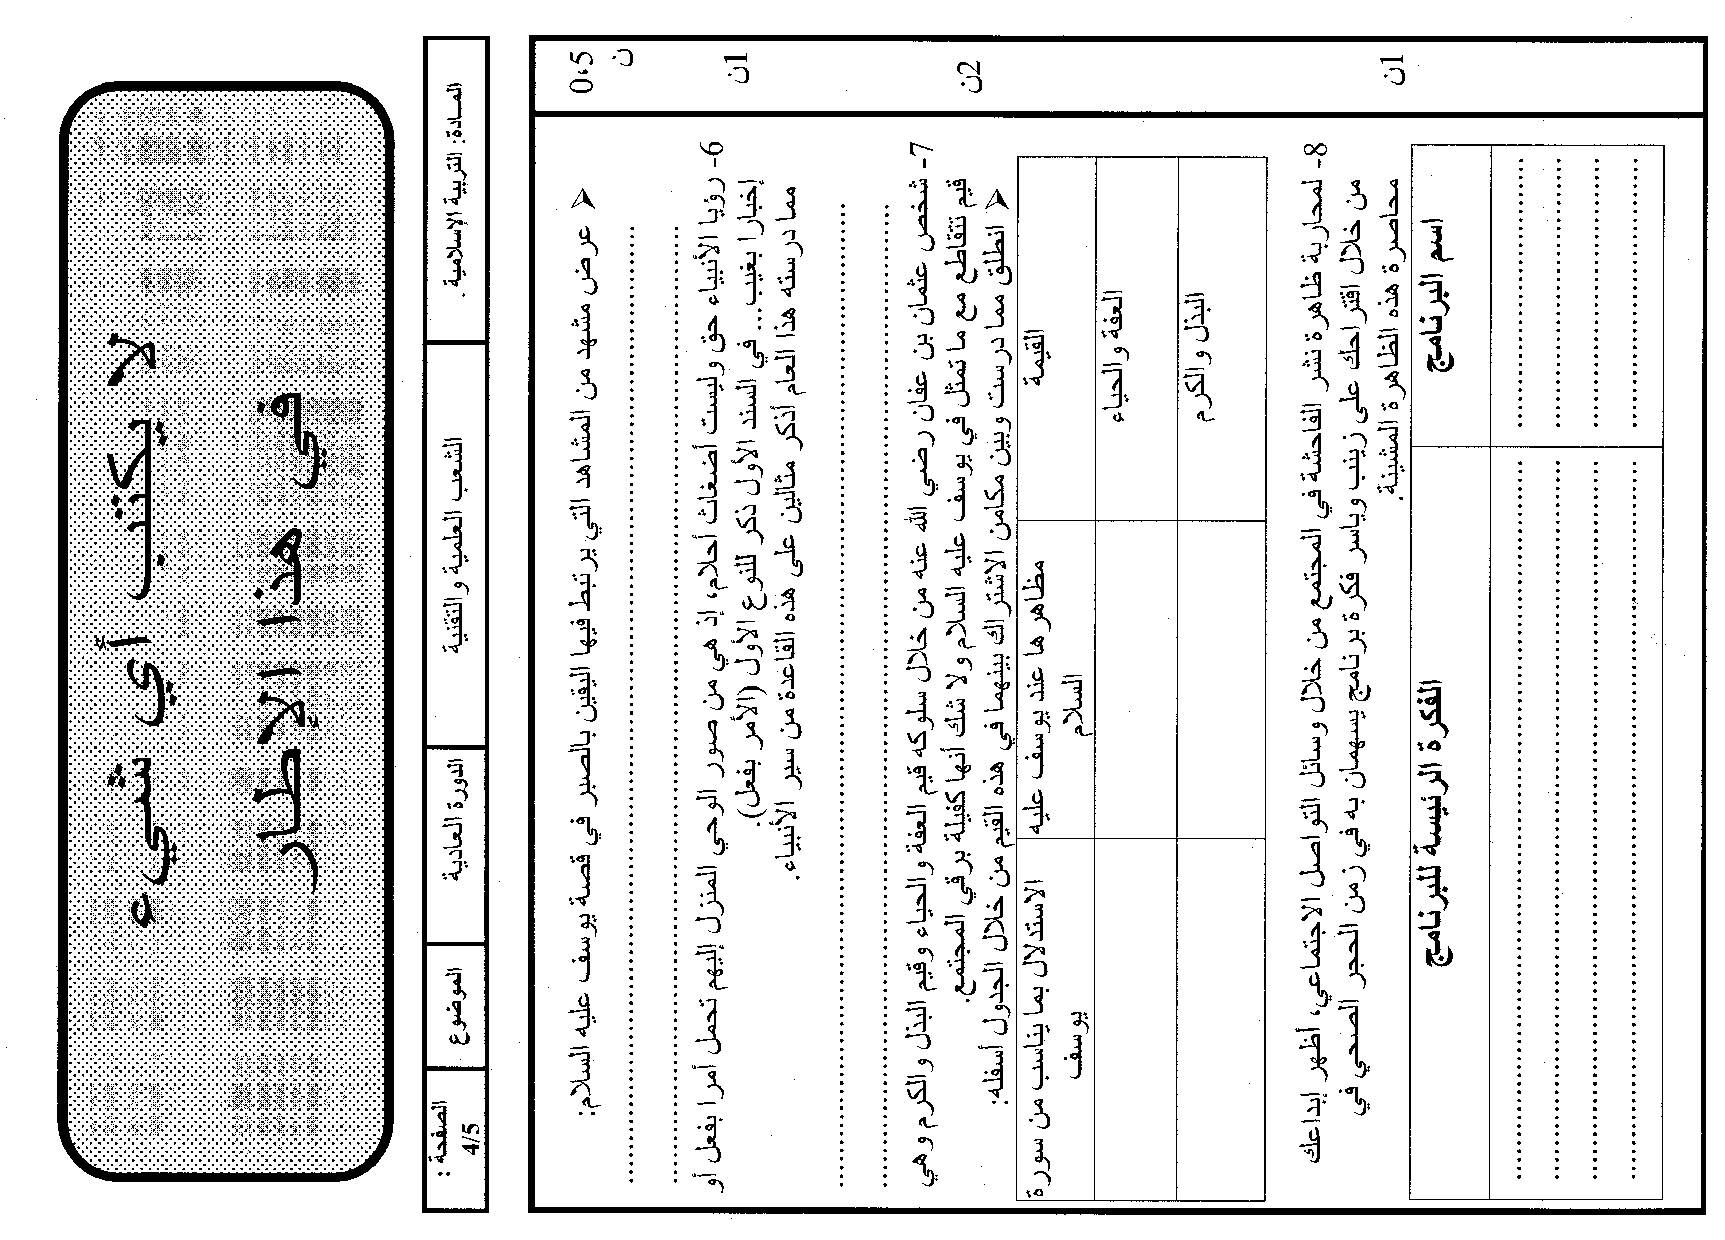 لا يكتب أي شيء
في هذا الإطار
المادة: التربية الإسلامية.
الشعب العلمية والتقنية
الدورة العادية
الموضوع
الصفحة :
4/5
0،5
ن
➢ عرض مشهد من المشاهد التي يرتبط فيها اليقين بالصبر في قصة يوسف عليه السلام:
1ن
6- رؤيا الأنبياء حق وليست أضغاث أحلام، إذ هي من صور الوحي المنزل إليهم تحمل أمرا بفعل أو
إخبارا بغيب... في السند الأول ذكر للنوع الأول (الأمر بفعل).
مما درسته هذا العام أذكر مثالين على هذه القاعدة من سير الأنبياء.
2ن
7- شخص عثمان بن عفان رضي الله عنه من خلال سلوكه قيم العفة والحياء وقيم البذل والكرم وهي
قيم تتقاطع مع ما تمثل في يوسف عليه السلام ولا شك أنها كفيلة برقي المجتمع.
➢ انطلق مما درست وبين مكامن الاشتراك بينهما في هذه القيم من خلال الجدول أسفله:
القيمة
مظاهرها عند يوسف عليه
السلام
الاستدلال بما يناسب من سورة
يوسف
العفة والحياء
البذل والكرم
1ن
8- لمحاربة ظاهرة نشر الفاحشة في المجتمع من خلال وسائل التواصل الاجتماعي، أظهر إبداعك
من خلال اقتراحك على زينب وياسر فكرة برنامج يسهمان به في زمن الحجر الصحي في
محاصرة هذه الظاهرة المشينة.
اسم البرنامج
الفكرة الرئيسة للبرنامج